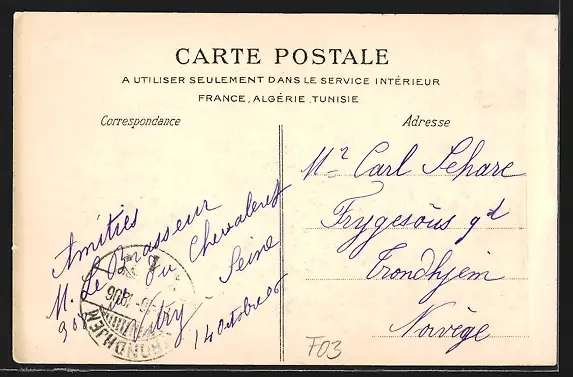 CARTE POSTALE
A UTILISER SEULEMENT DANS LE SERVICE INTÉRIEUR
FRANCE, ALGÉRIE, TUNISIE
Correspondance
Adresse
Amitiés
M. Le Brasseur
Du Chevaleret
Vitry Seine
14 Octobre 06
Mr Carl Schare
Trondhjem
Norvège
TRONDHJEM
F03